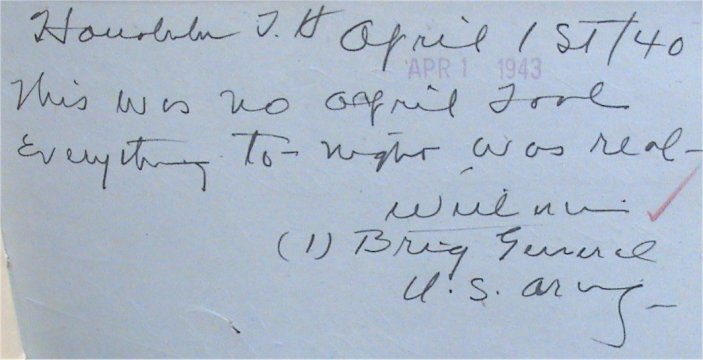 Honolulu T.H April 1 ST/40
APR 1 1943
This was no April Fool
Everything to-night was real-
(1) Brig General
U.S. Army-